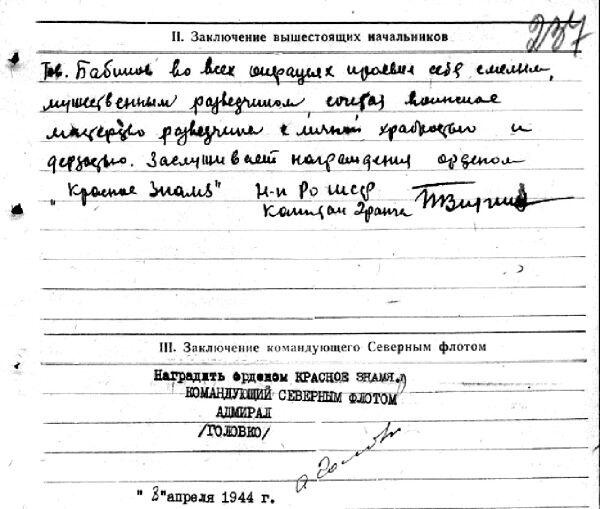 237
II. Заключение вышестоящих начальников
Тов. Бабиков во всех операциях проявил себя смелым,
мужественным разведчиком, сочетая воинское
мастерство разведчика с личной храбростью и
дерзостью. Заслуживает награждения орденом
„Красное Знамя" Н-к РО ШСФ
Капитан 2 ранга
III. Заключение командующего Северным флотом
Наградить орденом КРАСНОЕ ЗНАМЯ.
КОМАНДУЮЩИЙ СЕВЕРНЫМ ФЛОТОМ
АДМИРАЛ
/ГОЛОВКО/
"8" апреля 1944 г.